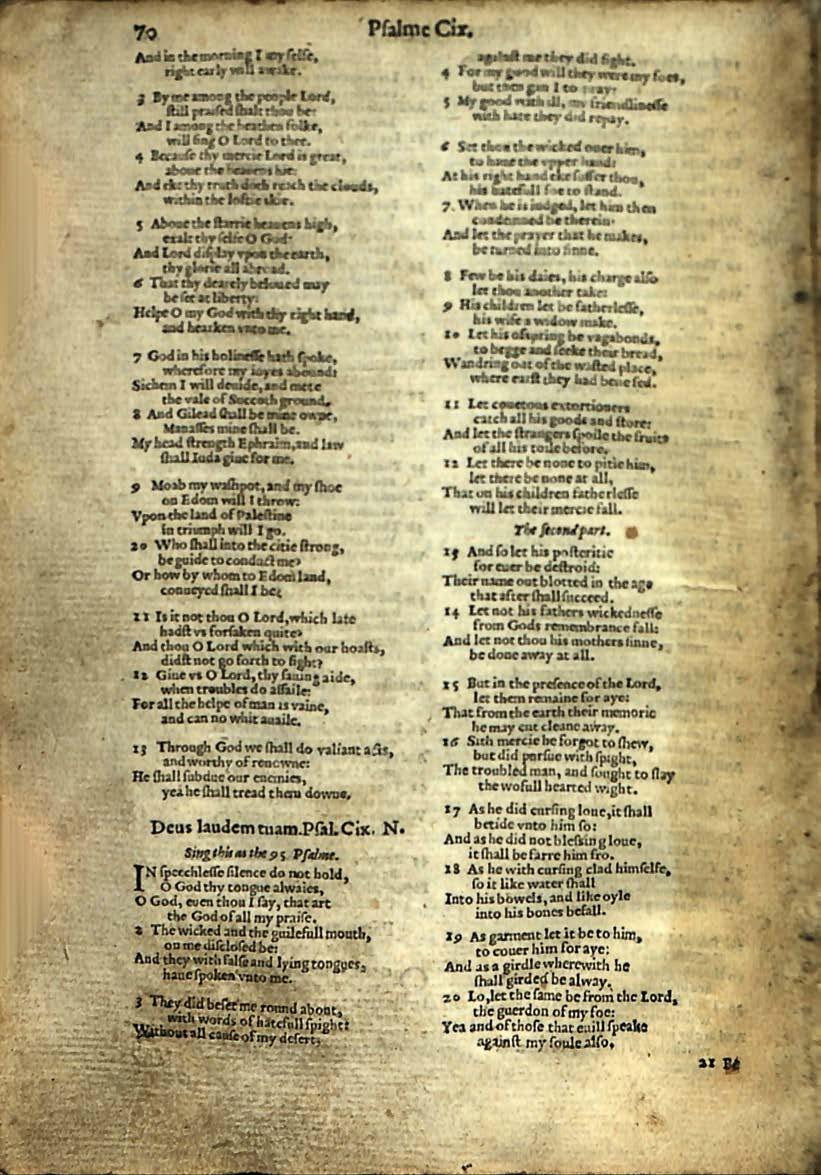 70
Pſalme Cix.
And in the morning I my ſelfe,
right early will awake.
3 By me among the people Lord,
ſtill praiſed ſhalt thou be:
And I among the heathen folke,
will ſing O Lord to thee.
4 Becauſe thy mercie Lord is great,
aboue the heauens hie:
And eke thy truth doth reach the clouds,
within the loftie skie.
5 Aboue the ſtarrie heauens high,
exalt thy ſelfe O God:
And Lord diſplay vpon the earth,
thy glorie all abroad.
6 That thy dearely beloued may
be ſet at liberty:
Helpe O my God with thy right hand,
and hearken vnto me.
7 God in his holineſſe hath ſpoke,
wherefore my ioyes abound:
Sichem I will deuide, and mete
the vale of Succoth ground.
8 And Gilead ſhall be mine owne,
Manaſſes mine ſhall be.
My head ſtrength Ephraim, and law
ſhall Iuda giue for me.
9 Moab my waſhpot, and my ſhoe
on Edom will I throw:
Vpon the land of Paleſtine
in triumph will I go.
20 Who ſhall into the citie ſtrong,
be guide to conduct me?
Or how by whom to Edom land,
conueyed ſhall I be?
11 Is it not thou O Lord, which late
hadſt vs forſaken quite?
And thou O Lord which with our hoaſts,
didſt not go forth to fight?
12 Giue vs O Lord, thy ſauing aide,
when troubles do aſſaile:
For all the helpe of man is vaine,
and can no whit auaile.
13 Through God we ſhall do valiant acts,
and worthy of renowne:
He ſhall ſubdue our enemies,
yea he ſhall tread them downe.
Deus laudem tuam. Pſal. Cix. N.
Sing this as the 95 Pſalme.
IN ſpeechleſſe ſilence do not hold,
O God thy tongue alwaies,
O God, euen thou I ſay, that art
the God of all my praiſe.
2 The wicked and the guilefull mouth,
on me diſcloſed be:
And they with falſe and lying tongues,
haue ſpoken vnto me.
3 They did beſet me round about,
with words of hatefull ſpight:
Without all cauſe of my deſert,
againſt me they did fight.
4 For my good will they were my foes,
but then gan I to pray:
5 My good with ill, my friendlineſſe
with hate they did repay.
6 Set thou the wicked ouer him,
to haue the vpper hand:
At his right hand eke ſuffer thou,
his hatefull foe to ſtand.
7. When he is iudged, let him then
condemned be therein.
And let the prayer that he makes,
be turned into ſinne.
8 Few be his daies, his charge alſo
let thou another take:
9 His children let be fatherleſſe,
his wife a widow make.
10 Let his ofspring be vagabonds,
to begge and ſeeke their bread,
Wandring out of the waſted place,
where earſt they had bene fed.
11 Let couetous extortioners
catch all his goods and ſtore:
And let the ſtrangers ſpoile the fruits
of all his toile before.
12 Let there be none to pitie him,
let there be none at all,
That on his children fatherleſſe
will let their mercie fall.
The ſecond part.
13 And ſo let his poſteritie
for euer be deſtroid:
Their name out blotted in the age
that after ſhall ſucceed.
14 Let not his fathers wickedneſſe
from Gods remembrance fall:
And let not thou his mothers ſinne,
be done away at all.
15 But in the preſence of the Lord,
let them remaine for aye:
That from the earth their memorie
he may cut cleane away.
16 Sith mercie he forgot to ſhew,
but did purſue with ſpight,
The troubled man, and ſought to ſlay
the wofull hearted wight.
17 As he did curſing loue, it ſhall
betide vnto him ſo:
And as he did not bleſsing loue,
it ſhall be farre him fro.
18 As he with curſing clad himſelfe,
ſo it like water ſhall
Into his bowels, and like oyle
into his bones befall.
19 As garment let it be to him,
to couer him for aye:
And as a girdle wherewith he
ſhall girded be alway.
20 Lo, let the ſame be from the Lord,
the guerdon of my foe:
Yea and of thoſe that euill ſpeake
againſt my ſoule alſo.
21 Be